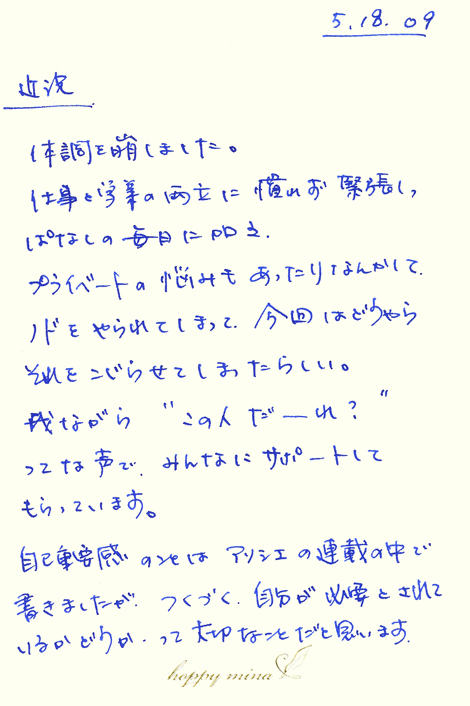 5.18.09
近況
体調を崩しました。
仕事と学業の両立に慣れず緊張し
っぱなしの毎日に加え
プライベートの悩みもあったりなんかして、
ノドをやられてしまって、今回はどうやら
それをこじらせてしまったらしい。
我ながら "この人だーれ？"
ってな声で、みんなにサポートして
もらっています。
自己重要感のことはアソシエの連載の中で
書きましたが、つくづく、自分が必要とされて
いるかどうか、って大切なことだと思います。
happy mina